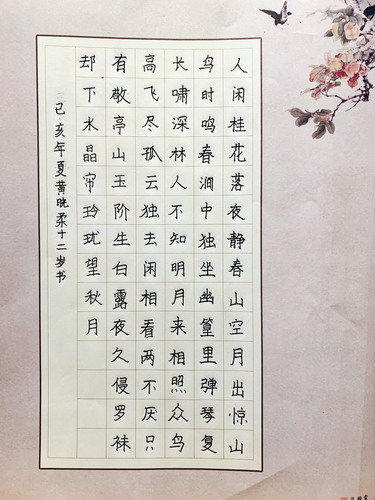 人闲桂花落夜静春山空月出惊山
鸟时鸣春涧中独坐幽篁里弹琴复
长啸深林人不知明月来相照众鸟
高飞尽孤云独去闲相看两不厌只
有敬亭山玉阶生白露夜久侵罗袜
却下水晶帘玲珑望秋月
己亥年夏黄晓柔十二岁书